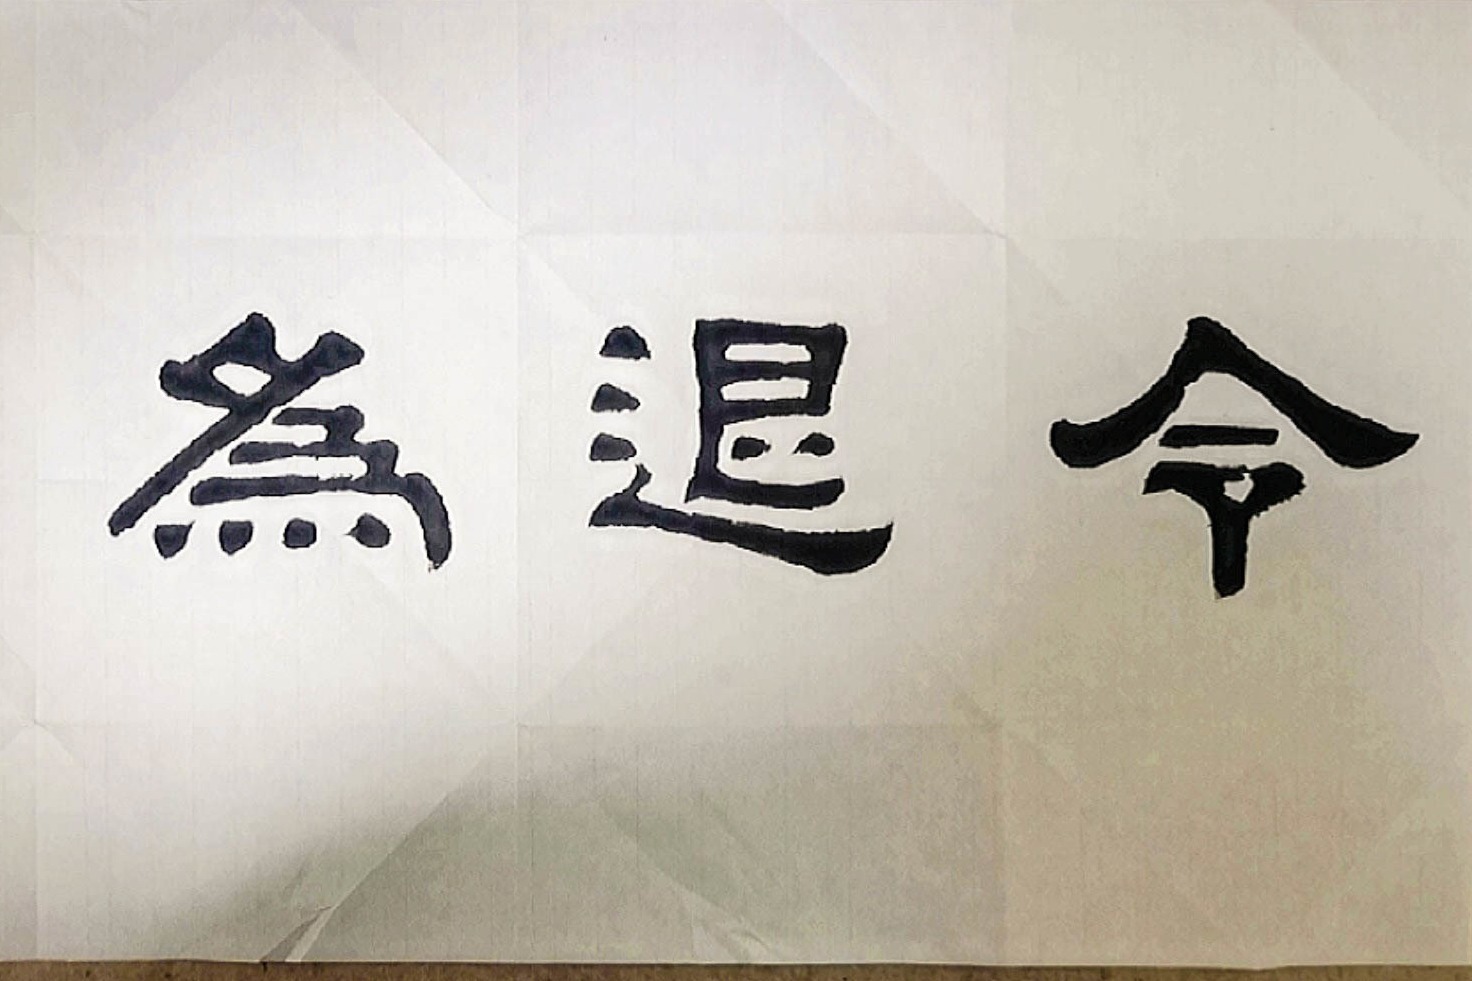 令退為